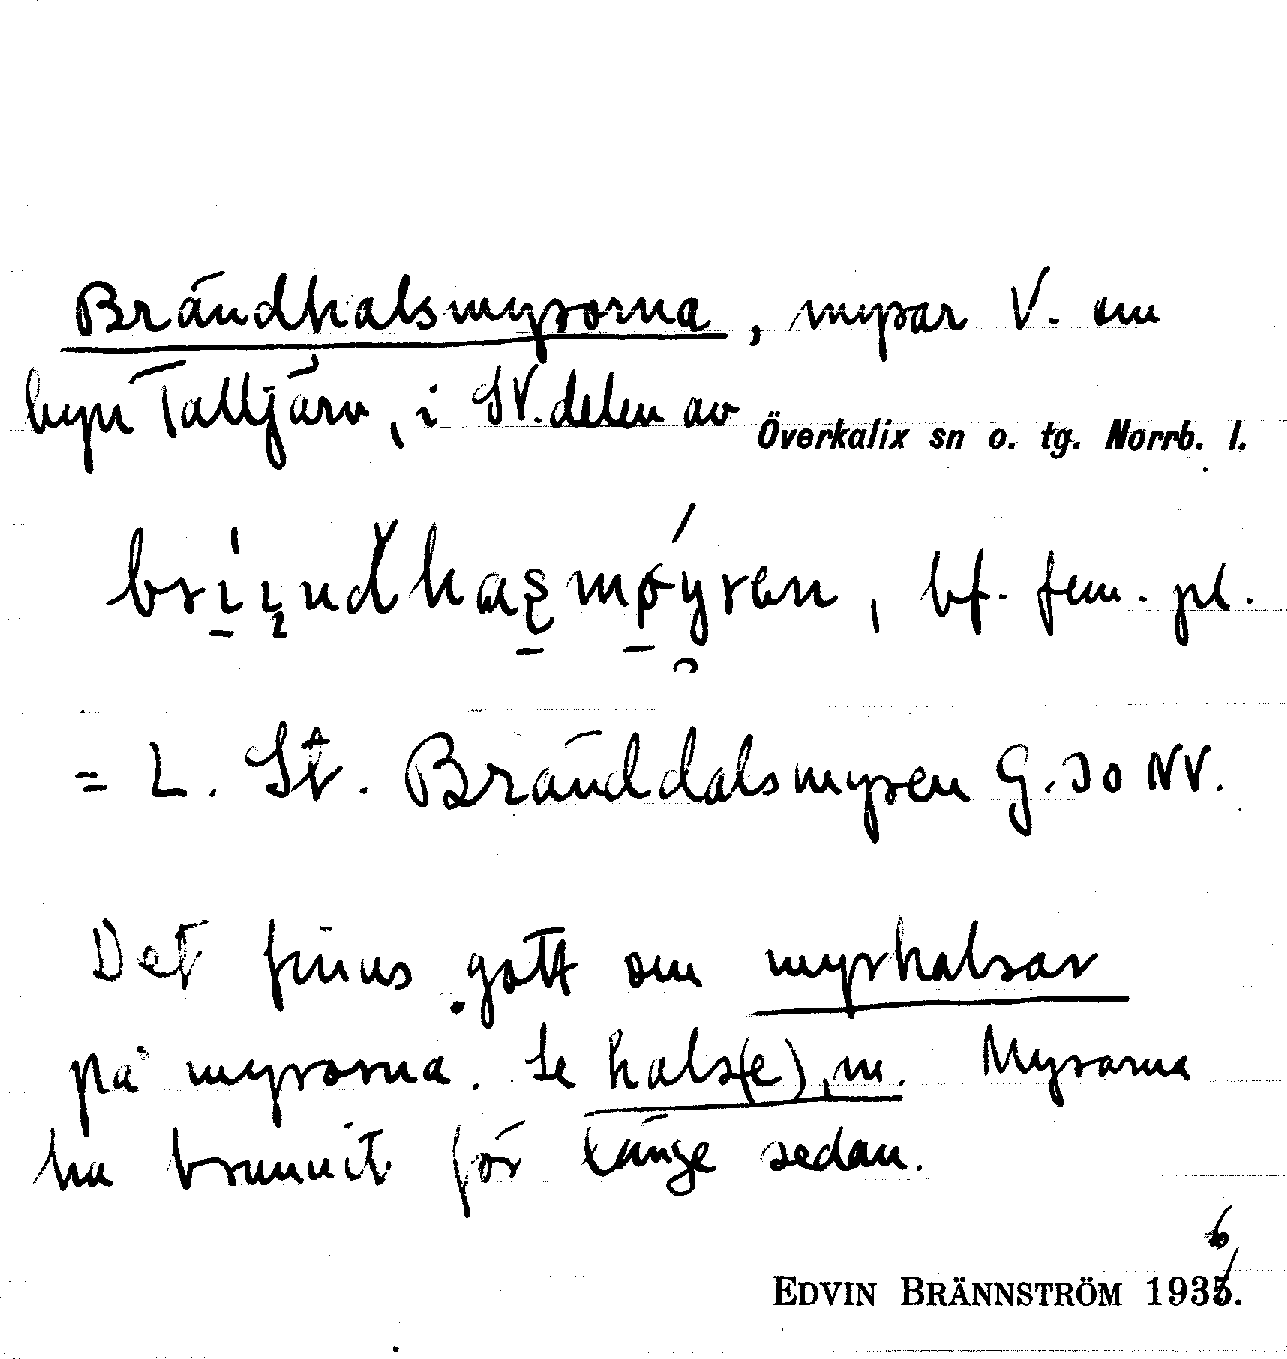 Brändhalsmyrorna, myrar V. om
byn Talljärv, i SV. delen av Överkalix sn o. tg. Norrb. l.
bf. fem. pl.
= L. St. Bränddalsmyren G. 30 NV.
Det finns gott om myrhalsar
på myrorna. Se hals(e), m. Myrorna
ha brunnit för länge sedan.
6
EDVIN BRÄNNSTRÖM 1935.